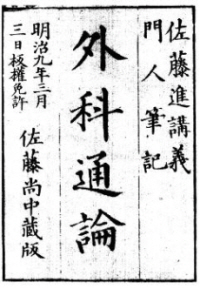 佐藤進講義
門人筆記
外科通論
明治九年三月
三日板権免許
佐藤尚中蔵版